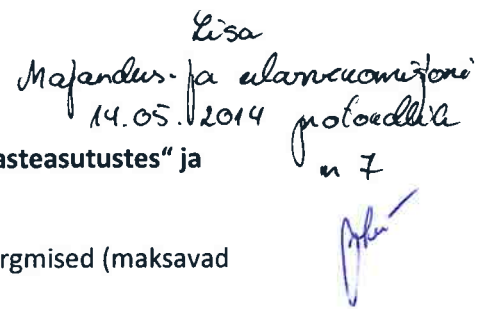 Lisa
Majandus- ja elarvekomisjoni
14.05.2014 protokollile
asteasutustes“ ja
n 7
rgmised (maksavad